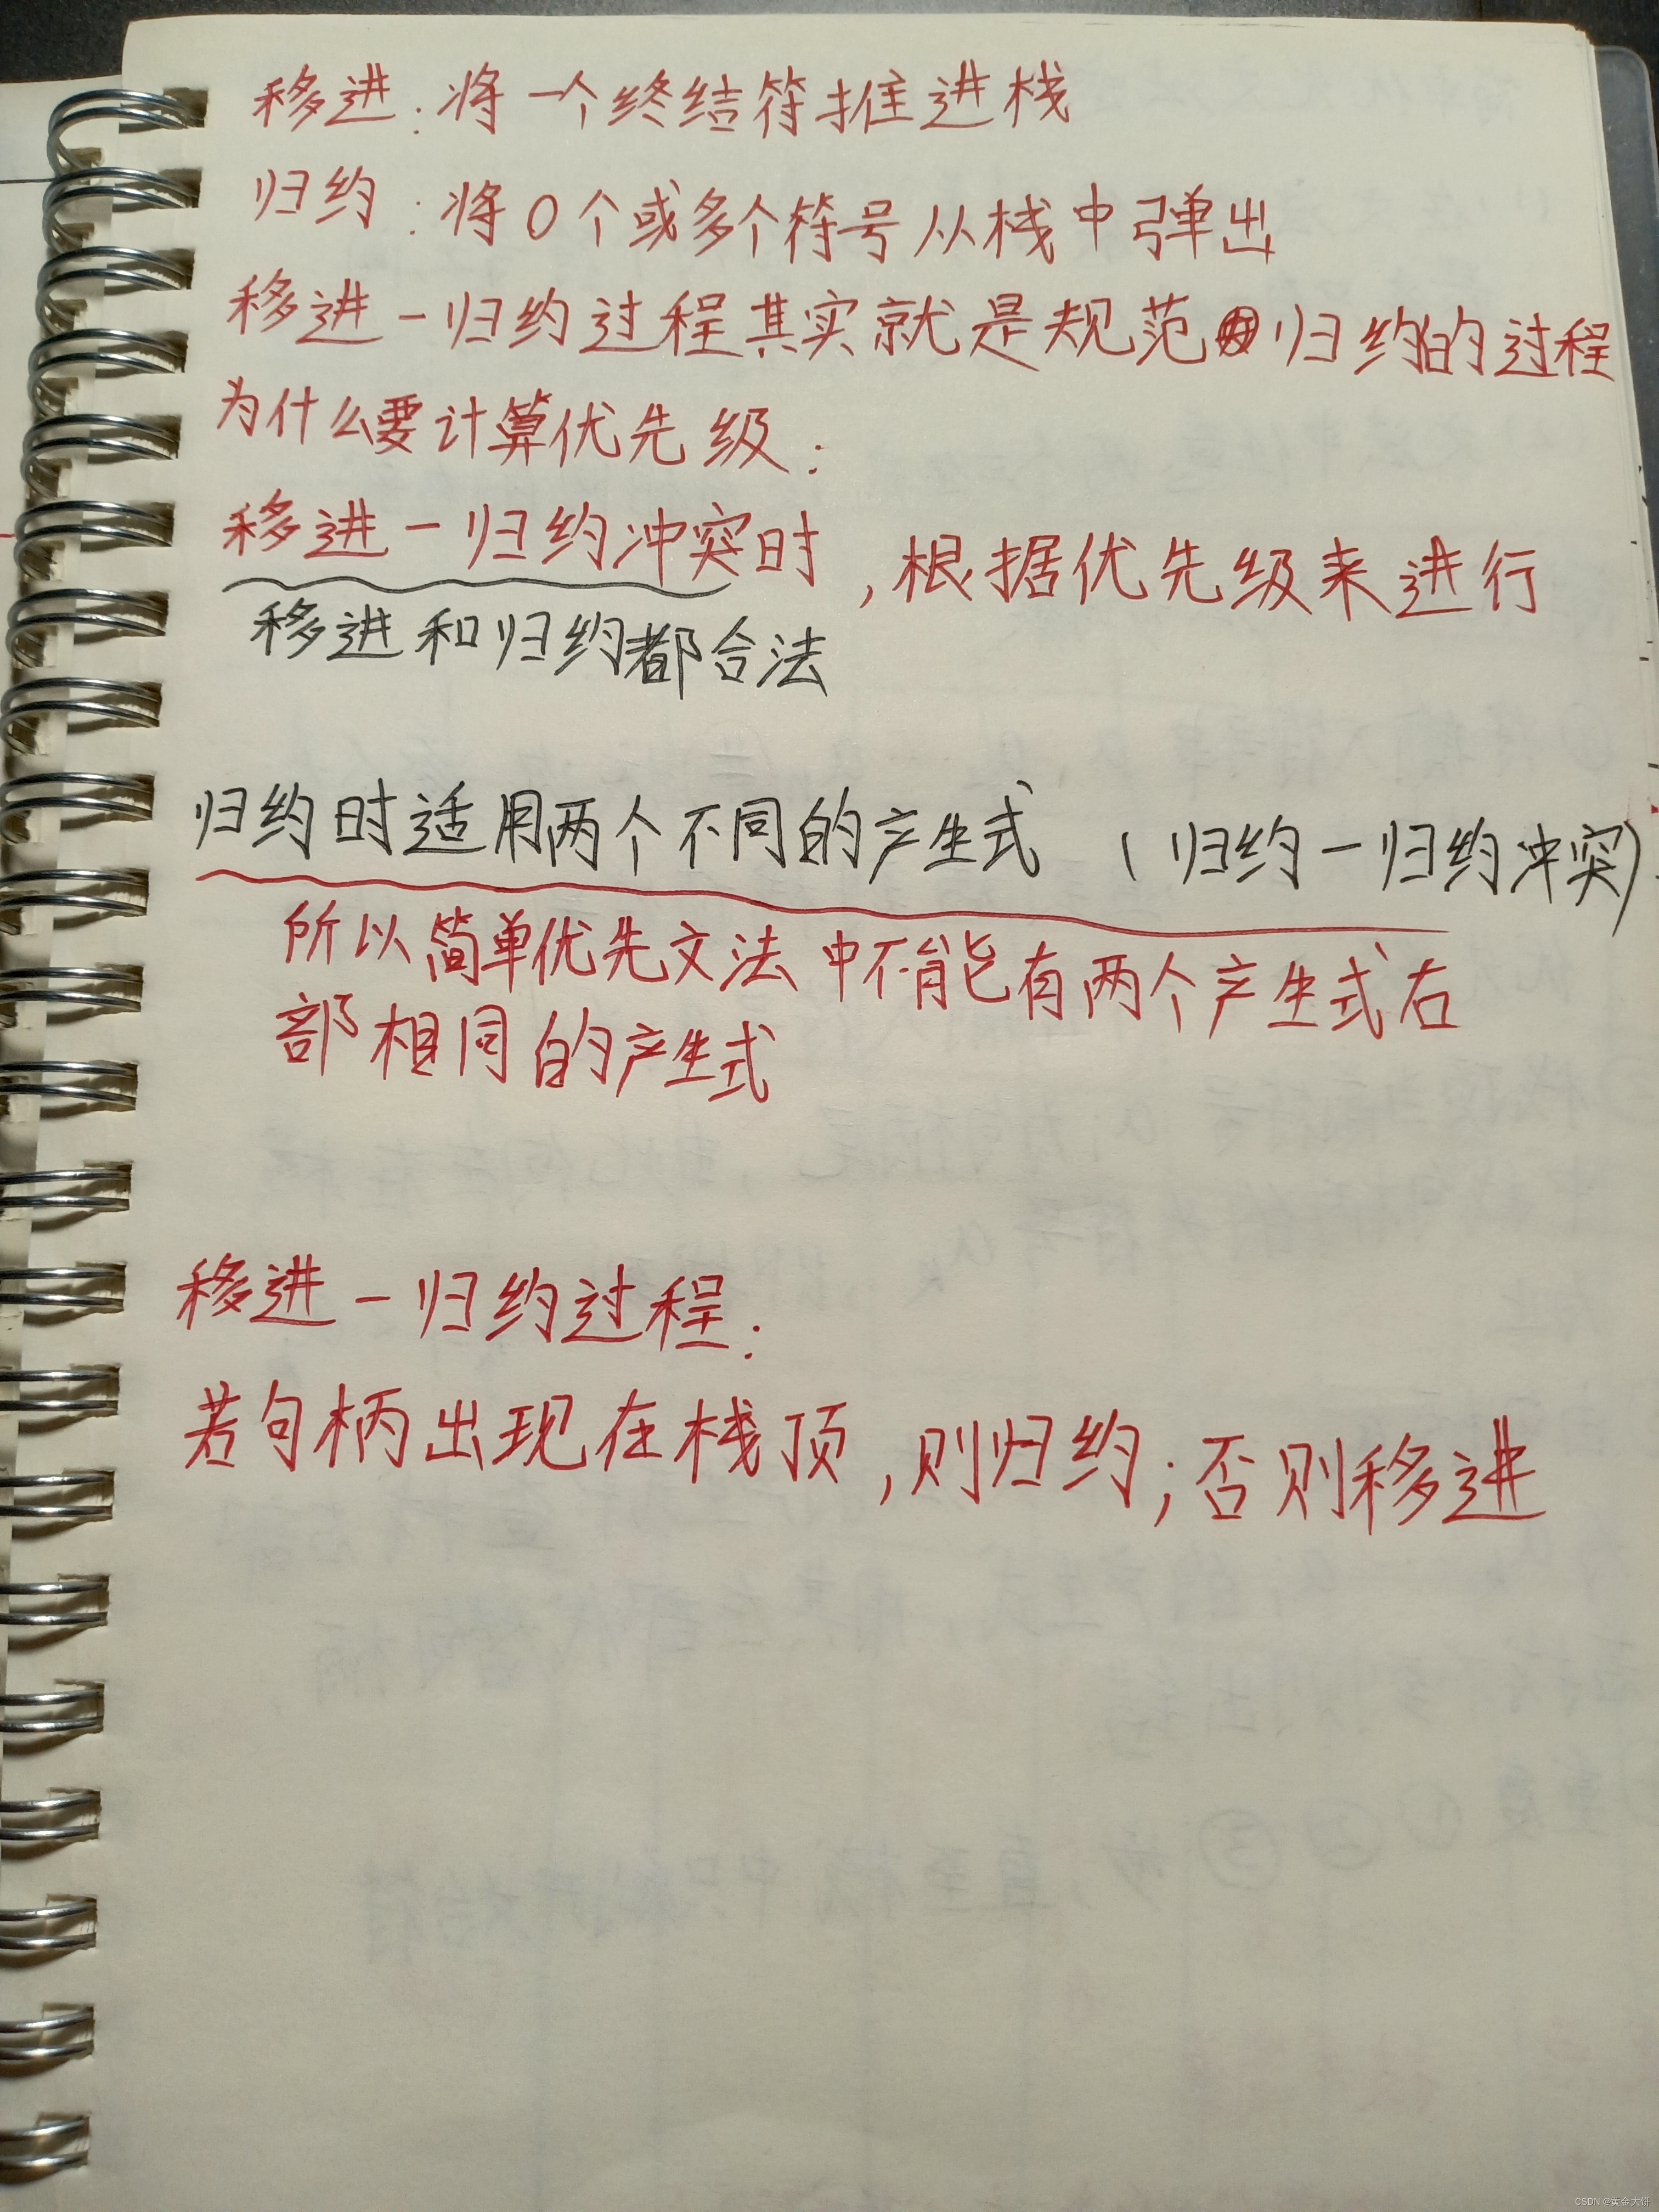 移进：将一个终结符推进栈
归约：将0个或多个符号从栈中弹出
移进-归约过程其实就是规范归约的过程
为什么要计算优先级：
移进-归约冲突时，根据优先级来进行
移进和归约都合法
归约时适用两个不同的产生式（归约-归约冲突）
所以简单优先文法中不能有两个产生式右
部相同的产生式
移进-归约过程：
若句柄出现在栈顶，则归约；否则移进
CSDN @黄金大饼